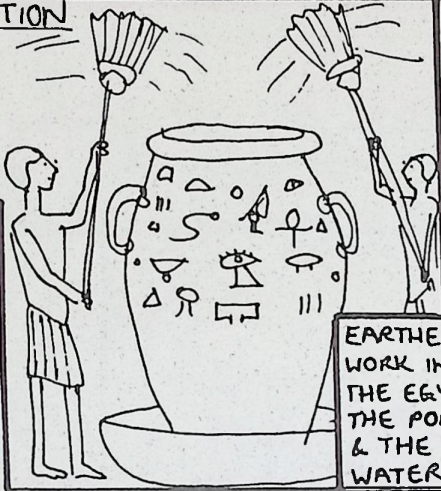 TION
EARTHE
WORK IN
THE EGY
THE PO
& THE
WATER